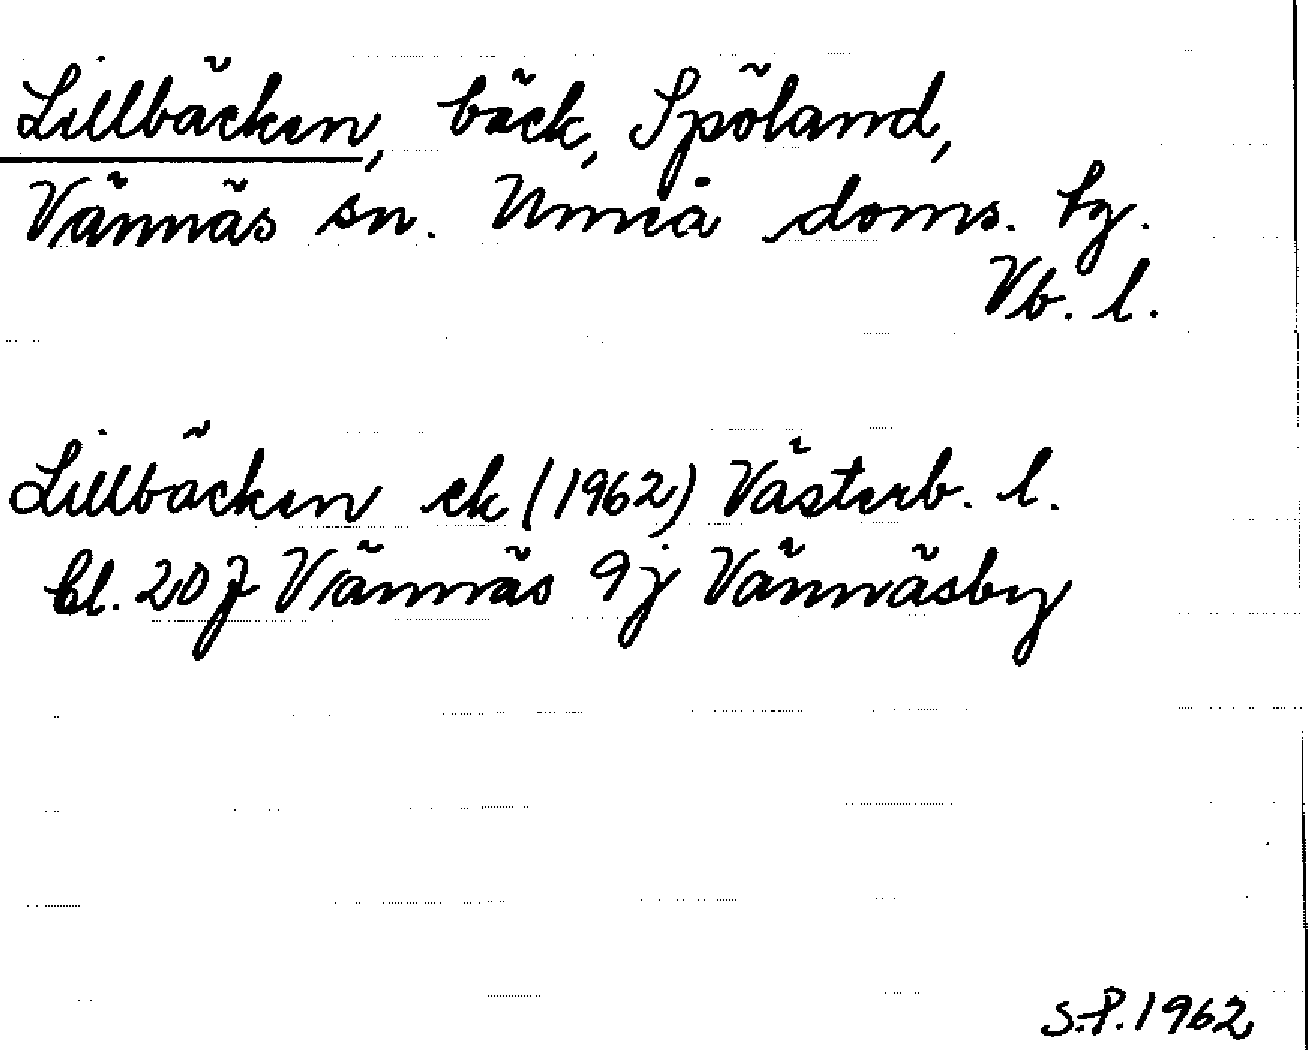 Lillbäcken, bäck, Spöland,
Vännäs sn. Umeå doms. hg.
Vb. l.
Lillbäcken ek (1962) Västerb. l.
bl. 20 J Vännäs 9j Vännäsby
S.P. 1962